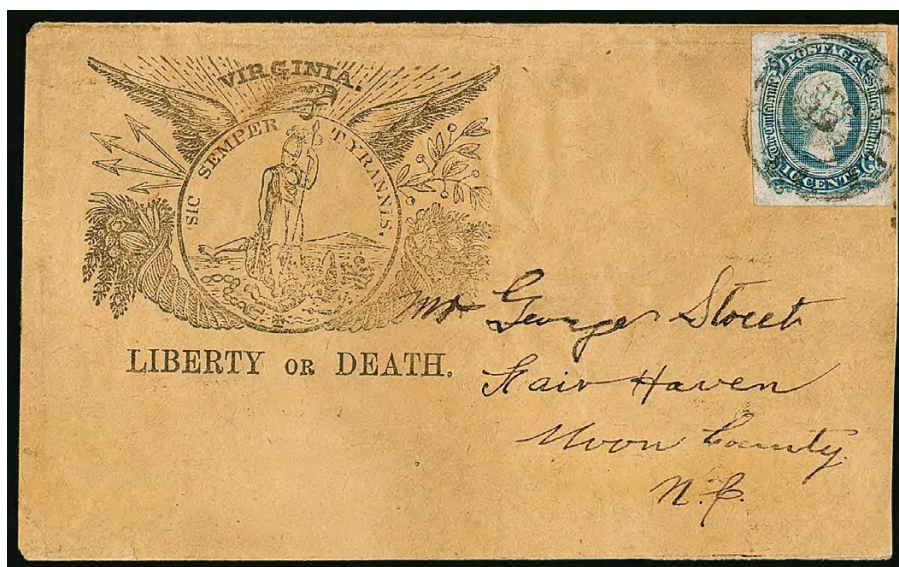 VIRGINIA.
SIC SEMPER TYRANNIS.
LIBERTY OR DEATH.
POSTAGE
The Confederate States of America
10 CENTS
Mr George Street
Fair Haven
Moon County
N.C.